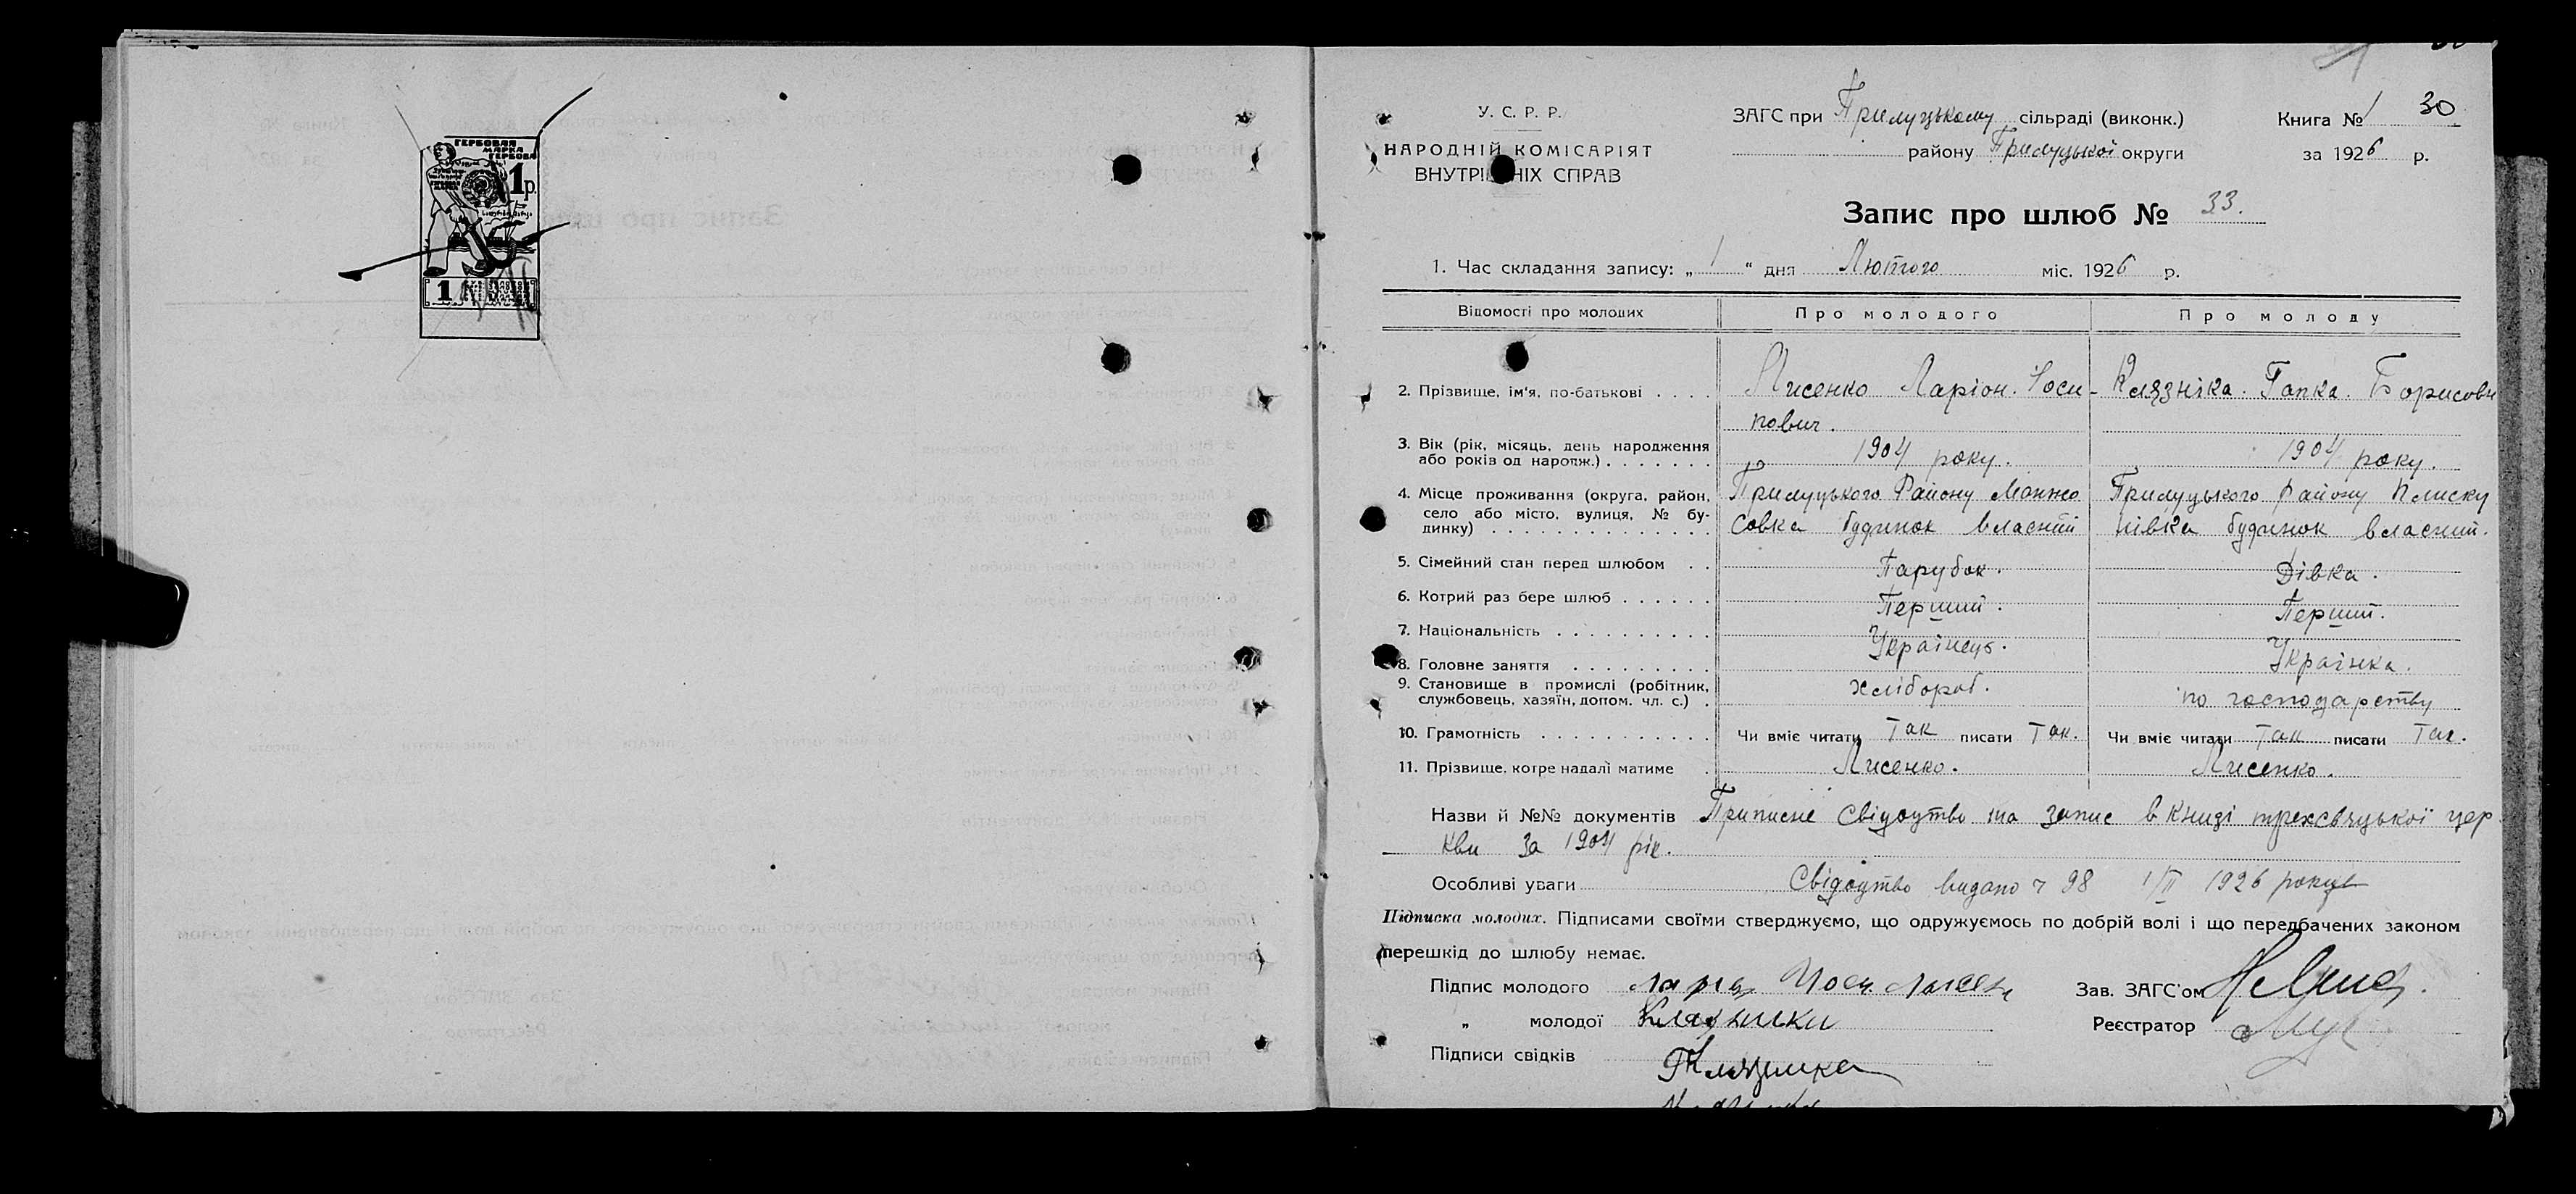 ГЕРБОВАЯ
МАРКА
ГЕРБОВА
1 р.
1
30
У. С. Р. Р.
НАРОДНІЙ КОМІСАРІЯТ
ВНУТРІШНІХ СПРАВ
ЗАГС при Прилуцькому сільраді (виконк.)
району Прилуцької округи
Книга № 1
за 1926 р.
Запис про шлюб № 33.
1. Час складання запису: „ 1 “ дня Лютого міс. 1926 р.
Відомості про молодих Про молодого Про молоду
2. Прізвище, ім'я, по-батькові . . . . Лисенко Ларіон. Йоси- Клязніка. Гапка. Борисовн
пович.
3. Вік (рік, місяць, день народження
або років од народж.) . . . . . . . 1904 року. 1904 року.
4. Місце проживання (округа, район, Прилуцького Району Манжо Прилуцького Району Плиску
село або місто, вулиця, № бу- совка будинок власний нівка будинок власний.
динку) . . . . . . . . . . . . . .
5. Сімейний стан перед шлюбом . . Парубок. Дівка.
6. Котрий раз бере шлюб . . . . . . Перший. Перший.
7. Національність . . . . . . . . . . Українець. Українка.
8. Головне заняття . . . . . . . . .
9. Становище в промислі (робітник, хлібороб. по господарству
службовець, хазяїн, допом. чл. с.) .
10. Грамотність . . . . . . . . . . . Чи вміє читати так писати так. Чи вміє читати так писати так.
11. Прізвище, котре надалі матиме . Лисенко. Лисенко.
Назви й №№ документів Приписне свідоцтво та запис в книзі трехсвяцької цер
кви за 1904 рік.
Особливі уваги Свідоцтво видано ч 98 1/II 1926 року
Підписка молодих. Підписами своїми стверджуємо, що одружуємось по добрій волі і що передбачених законом
перешкід до шлюбу немає.
Підпис молодого
Зав. ЗАГС'ом
„ молодої Клязники
Реєстратор
Підписи свідків
Клязника